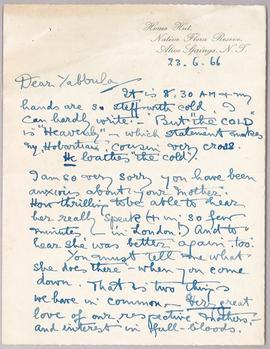 Home Hut,
Native Flora Reserve,
Alice Springs, N.T.
23.6.66
Dear Yabbula
It is 8.30 AM & my
hands are so stiff with cold I
can hardly write. – But "the COLD"
is "Heavenly" – which statement makes
my, Hobartian, cousin very cross.
He loathes "the cold".
I am so very sorry you have been
anxious about your Mother.
How thrilling to be able to hear
her really speak (& in 30 few
minutes – in London!) And to
hear she was better again, too.
You must tell me what
she does there – when you come
down. That is two things
we have in common, – Very great
love of our respective Mothers, –
and interest in full-bloods.